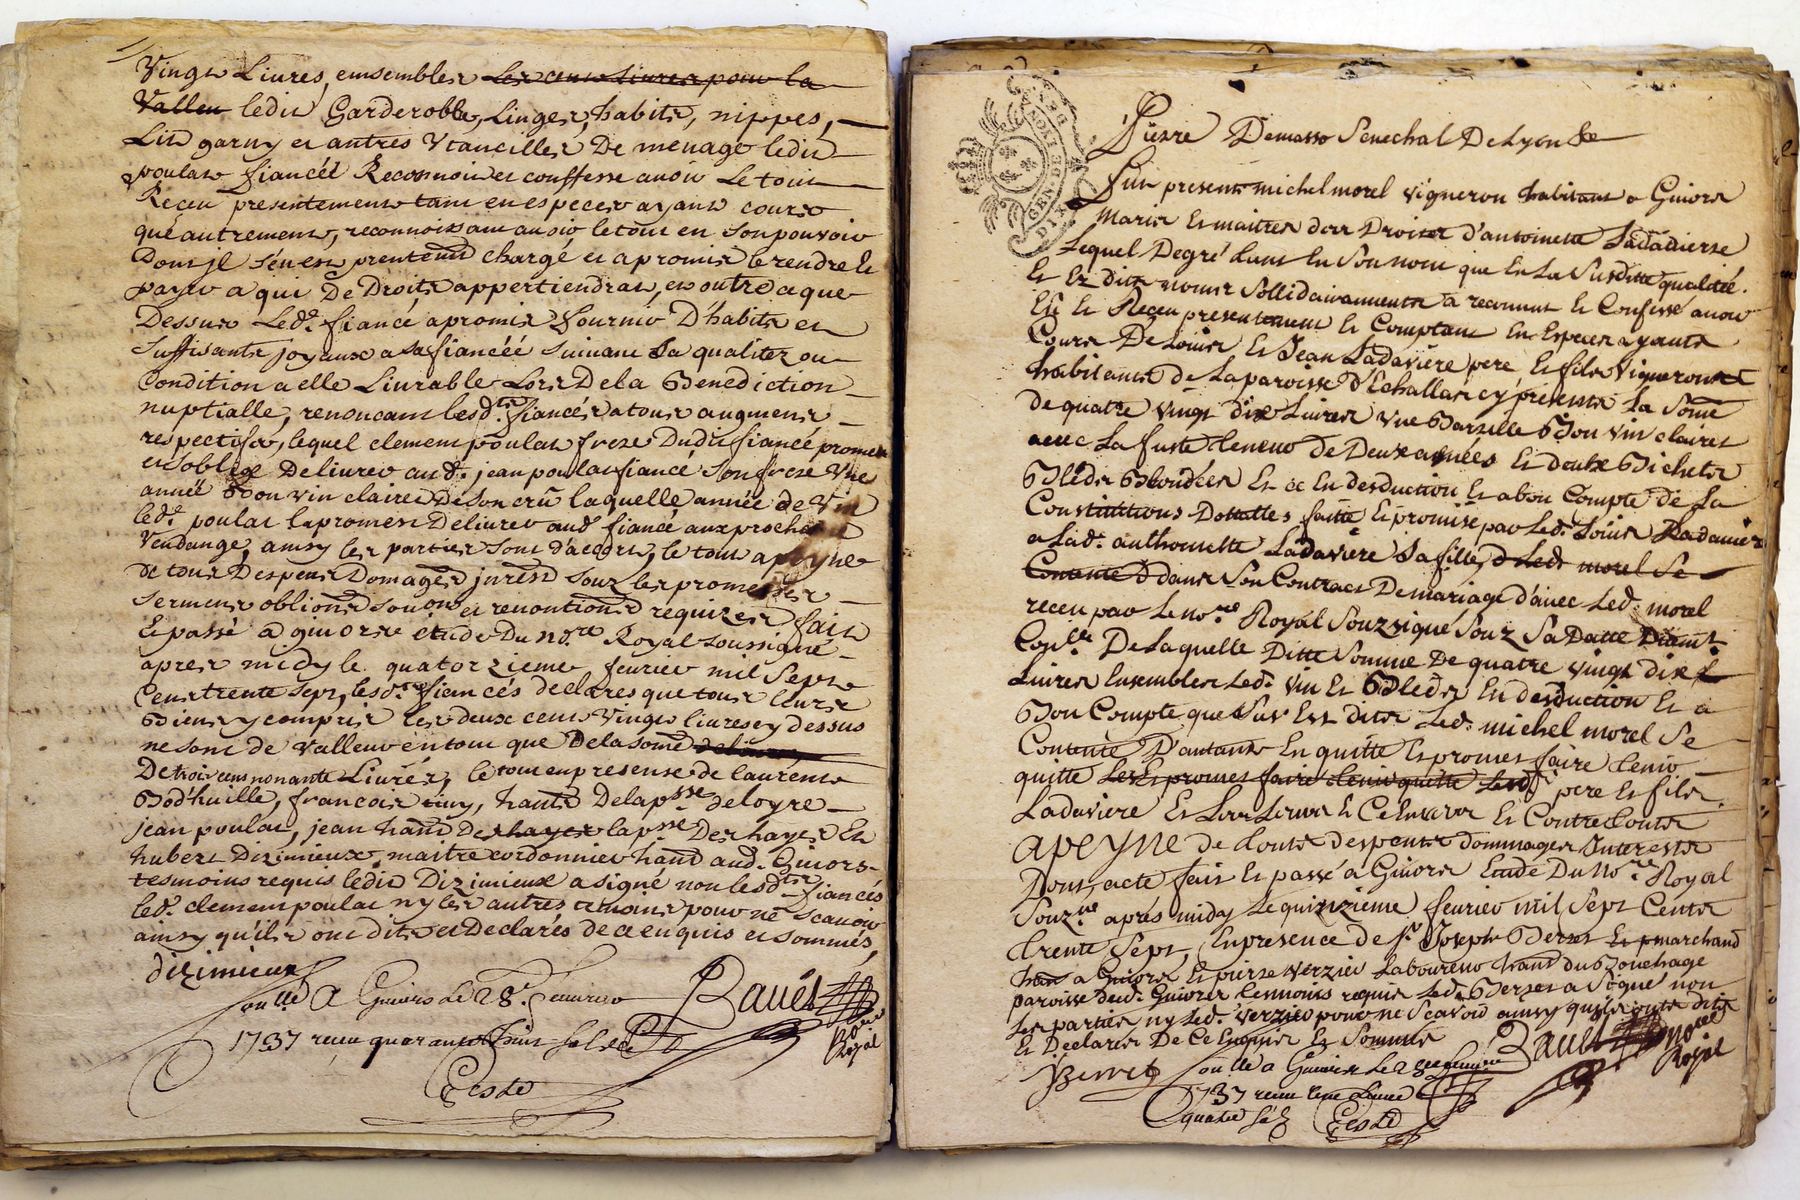 Vingt Livres, emsembles les cent Livres pour la
Valleu ledit Garderobbe, Linges, habits, nippes,
Lit garny et autres Vtancilles De menage ledit
poulat fiancéé Reconnoit et conffesse auoir Le tout
Receu presentement tant en especes ayant cours
que autrement, reconnoissant auoir le tout en son pouvoir
Dont jl s'en est prentend chargé et a promis le rendre et
payer a qui De Droits appertiendrat, en outre ce que
Dessus Led. fiancé a promis fournir D'habits et
suffisants joyaux a sa fiancéé suiuant sa qualitez ou
Condition a elle Liurable Lors De la Benediction
nuptialle, renoncant lesd. fiancés a tous augment
respectifs, lequel clement poulat frere Dudit fiancéé promet
et s'oblige De liurer aud. jean poulat fiancé son frere Vne
année Bon vin clairet De son crû laquelle année de Vin
led. poulat la promest De liurer aud. fiancé aux prochaines
Vendange, ainsy les parties sont d'accort, le tout a peyne
de tous Despens Domages jntests souz les promesses
serments obligons soumons et renontions requizes fait
Et passé a giuors étude Du no.re Royal soussigné
apres midy le quatorzieme feurier mil Sept
Cent trente sept, lesd. fiancés declares que tous leurs
Biens y compris les deux cent Vingt liures cy dessus
ne sont de Valleur en tout que De la some
De trois cens nonante Livrés, le tout en presense de laurent
Bod'huille, francois tiny, hants De la psse de loyre
jean poulat, jean hant De la psse Des hayes Et
hubert Dizimieux maitre cordonnier hant aud. Giuors
tesmoins requis ledit Dizimieux a signé non lesdts fiancés
led. clement poulat ny les autres temoins pour ne scauoir
ainsy qu'ils ont dits et Declarés de ce enquis et sommés
dizimieux
Bauet no.re Royal
Con.llé A Giuors Le 28.e feurier
1737 receu quarante huit sols
Teste
GEN DE LYON DIX DEN
Pierre Demasso Senechal De Lyon &c
Fut present michel morel vigneron habitant a Giuors
Maris Et maitres des Droits d'antoinette Ladaviere
Lequel De gré tant En Son nom que En La Susditte qualité
Et Ez dits noms Sollidairements a reconnut Et Confessé auoir
Eû Et Receu presentement Et Comptant En Especes ayants
Cours De Louis Et Jean Ladaviere pere Et fils Vignerons
habitants de La paroisse D'Echallas cy présents La Somé
de quatre vingt dix Livres vne Barselle Bon vin clairet
avec La fuste tenens de Deux asnées Et doubx Bichets
Bleds Bloudées Et ce En desduction Et abon Compte de La
Constitutions Dotalles faitte Et promise par Led. Louis Ladavier
a Lad. anthoinette Ladaviere Sa fille, d Led. morel Se
Contente D dans Son Contract De mariage d'avec Led. morel
receu par Le no.re Royal Souzsigné Souz Sa Datte
Con.lé De Laquelle Ditte Somme De quatre vingt dix
Livres Ensembles Leds vin Et Bleds En desduction Et a
Bon Compte que Sus Est dits Led. michel morel Se
Contente D'autants En quitte Et promet faire tenir
quitte Les Et promet faire tenir quitte Lesd. pere Et fils
Ladaviere Et Leurs Leurs Et Ce Envers Et Contre touts
APEYNE de touts despents dommages Interests
Dont, acte fait Et passé à Giuors Etude Du No.re Royal
Souz.né après midy Le quinzieme feurier mil Sept Cents
trente Sept, En presence de Sr Joseph Berset Et marchand
hant a Giuors Et pierre Verzier Laboureur hant du Bouchage
paroisse dud. Giuors temoins requis Led. Berset a Signé non
Les parties ny Led. Verzier pour ne Scavoir ainsy quils ont dits
Et Declares De Ce Enquis Et Sommés
Berret
Bauet no.re Royal
Con.llé a Giuors Le 28e feurier
1737 receu une Liure
quatre s.
Teste